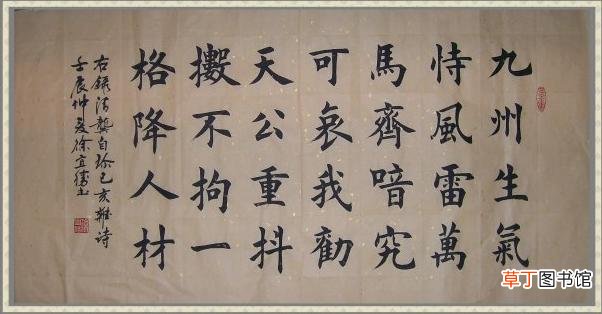 九州生氣
恃風雷萬
馬齊喑究
可哀我勸
天公重抖
擻不拘一
格降人材
右錄清龔自珍己亥雜詩
壬辰仲夏徐宜书
草丁图书馆